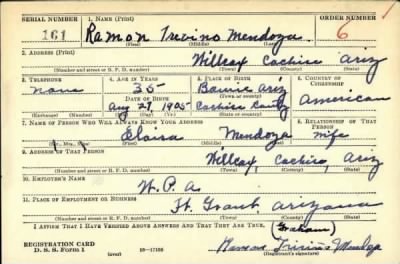 SERIAL NUMBER 1. NAME (Print) ORDER NUMBER
161 Ramon Trevino Mendoza 6
(First) (Middle) (Last)
2. ADDRESS (Print)
Willcox Cochise Ariz
(Number and street or R. F. D. number) (Town) (County) (State)
3. TELEPHONE 4. AGE IN YEARS 5. PLACE OF BIRTH 6. COUNTRY OF CITIZENSHIP
none 35 Bowie Ariz
DATE OF BIRTH (Town or county)
Aug 27, 1905 Cochise County American
(Exchange) (Number) (Mo.) (Day) (Yr.) (State or country)
7. NAME OF PERSON WHO WILL ALWAYS KNOW YOUR ADDRESS 8. RELATIONSHIP OF THAT PERSON
Eloisa Mendoza wife
(Mr., Mrs., Miss) (First) (Middle) (Last)
9. ADDRESS OF THAT PERSON
Willcox, Cochise, Ariz
(Number and street or R. F. D. number) (Town) (County) (State)
10. EMPLOYER'S NAME
W. P. A.
11. PLACE OF EMPLOYMENT OR BUSINESS
Ft. Grant. Arizona
(Number and street or R. F. D. number) (Town) (County) (State)
(Graham)
I AFFIRM THAT I HAVE VERIFIED ABOVE ANSWERS AND THAT THEY ARE TRUE.
REGISTRATION CARD
D. S. S. Form 1 (over) 16-17105 Ramon Trevino Mendoza
(Registrant's signature)